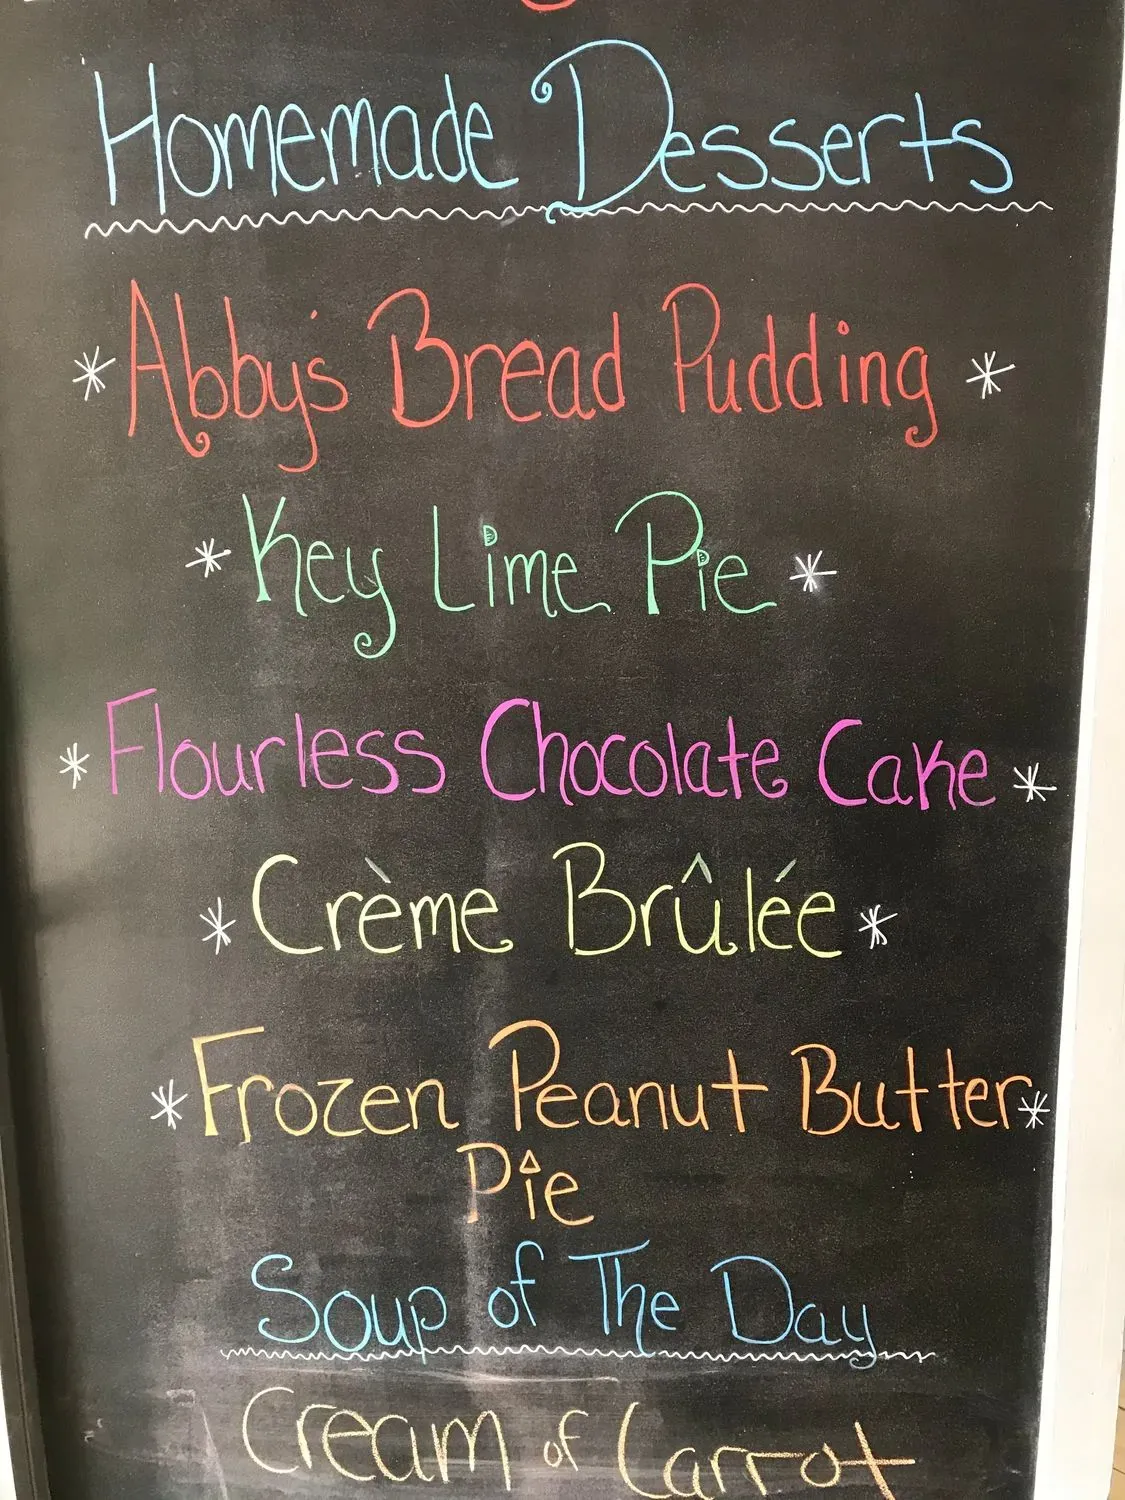 Homemade Desserts
* Abby's Bread Pudding *
* Key Lime Pie *
* Flourless Chocolate Cake *
* Crème Brûlée *
* Frozen Peanut Butter *
Pie
Soup of The Day
Cream of Carrot